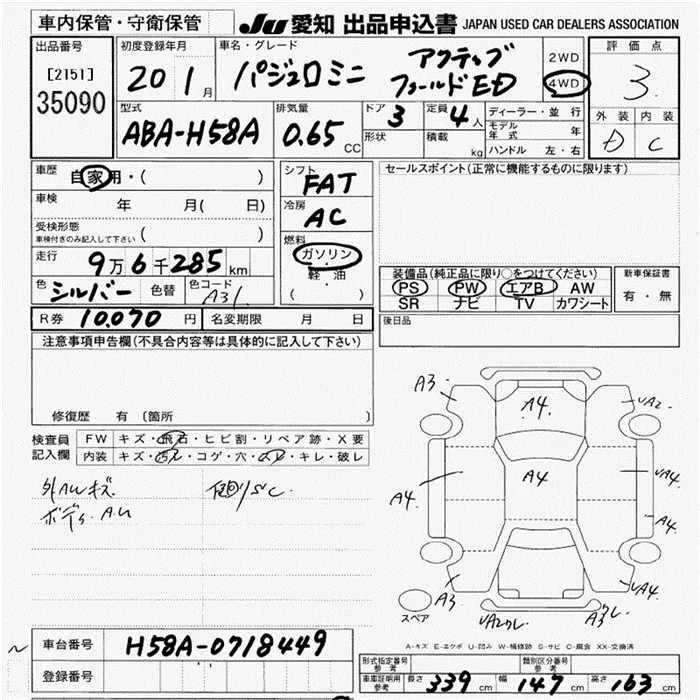 車内保管・守衛保管
JU 愛知 出品申込書 JAPAN USED CAR DEALERS ASSOCIATION
出品番号
[2151]
35090
初度登録年月
20 1月
車名・グレード
パジェロミニ
アクティブ
フィールドED
2WD
4WD
評価点
3.
外装 内装
D C
型式
ABA-H58A
排気量
0.65 CC
ドア 3
形状
定員 4人
積載 kg
ディーラー・並行
モデル年式 年
ハンドル 左・右
車歴
自家用・( )
車検 年 月( 日)
受検形態
車検付きのみ記入して下さい ( )
走行
9万6千285km
色 シルバー 色替 色コード A31
シフト
FAT
冷房
AC
燃料
ガソリン
軽油
( )
セールスポイント(正常に機能するものに限ります)
装備品(純正品に限り○をつけてください)
PS PW エアB AW
SR ナビ TV カワシート
新車保証書
有・無
R券 10.070 円 名変期限 月 日
後日品
注意事項申告欄(不具合内容等は具体的に記入して下さい)
修復歴 有 〔箇所
検査員記入欄
FW キズ・飛石・ヒビ割・リペア跡・X要
内装 キズ・汚レ・コゲ・穴・スレ・キレ・破レ
外AWキズ
ボディ.A.U
A3
A4
UA2
A4
A4
UA4
A4
A3
UA4
スペア
A-キズ E-エクボ U-凹み W-補修跡 S-サビ C-腐食 XX-交換済
車台番号 H58A-0718449
登録番号
形式指定番号 参考
類別区分番号 参考
車庫証明用 参考 長さ 339cm 幅 147cm 高さ 163cm